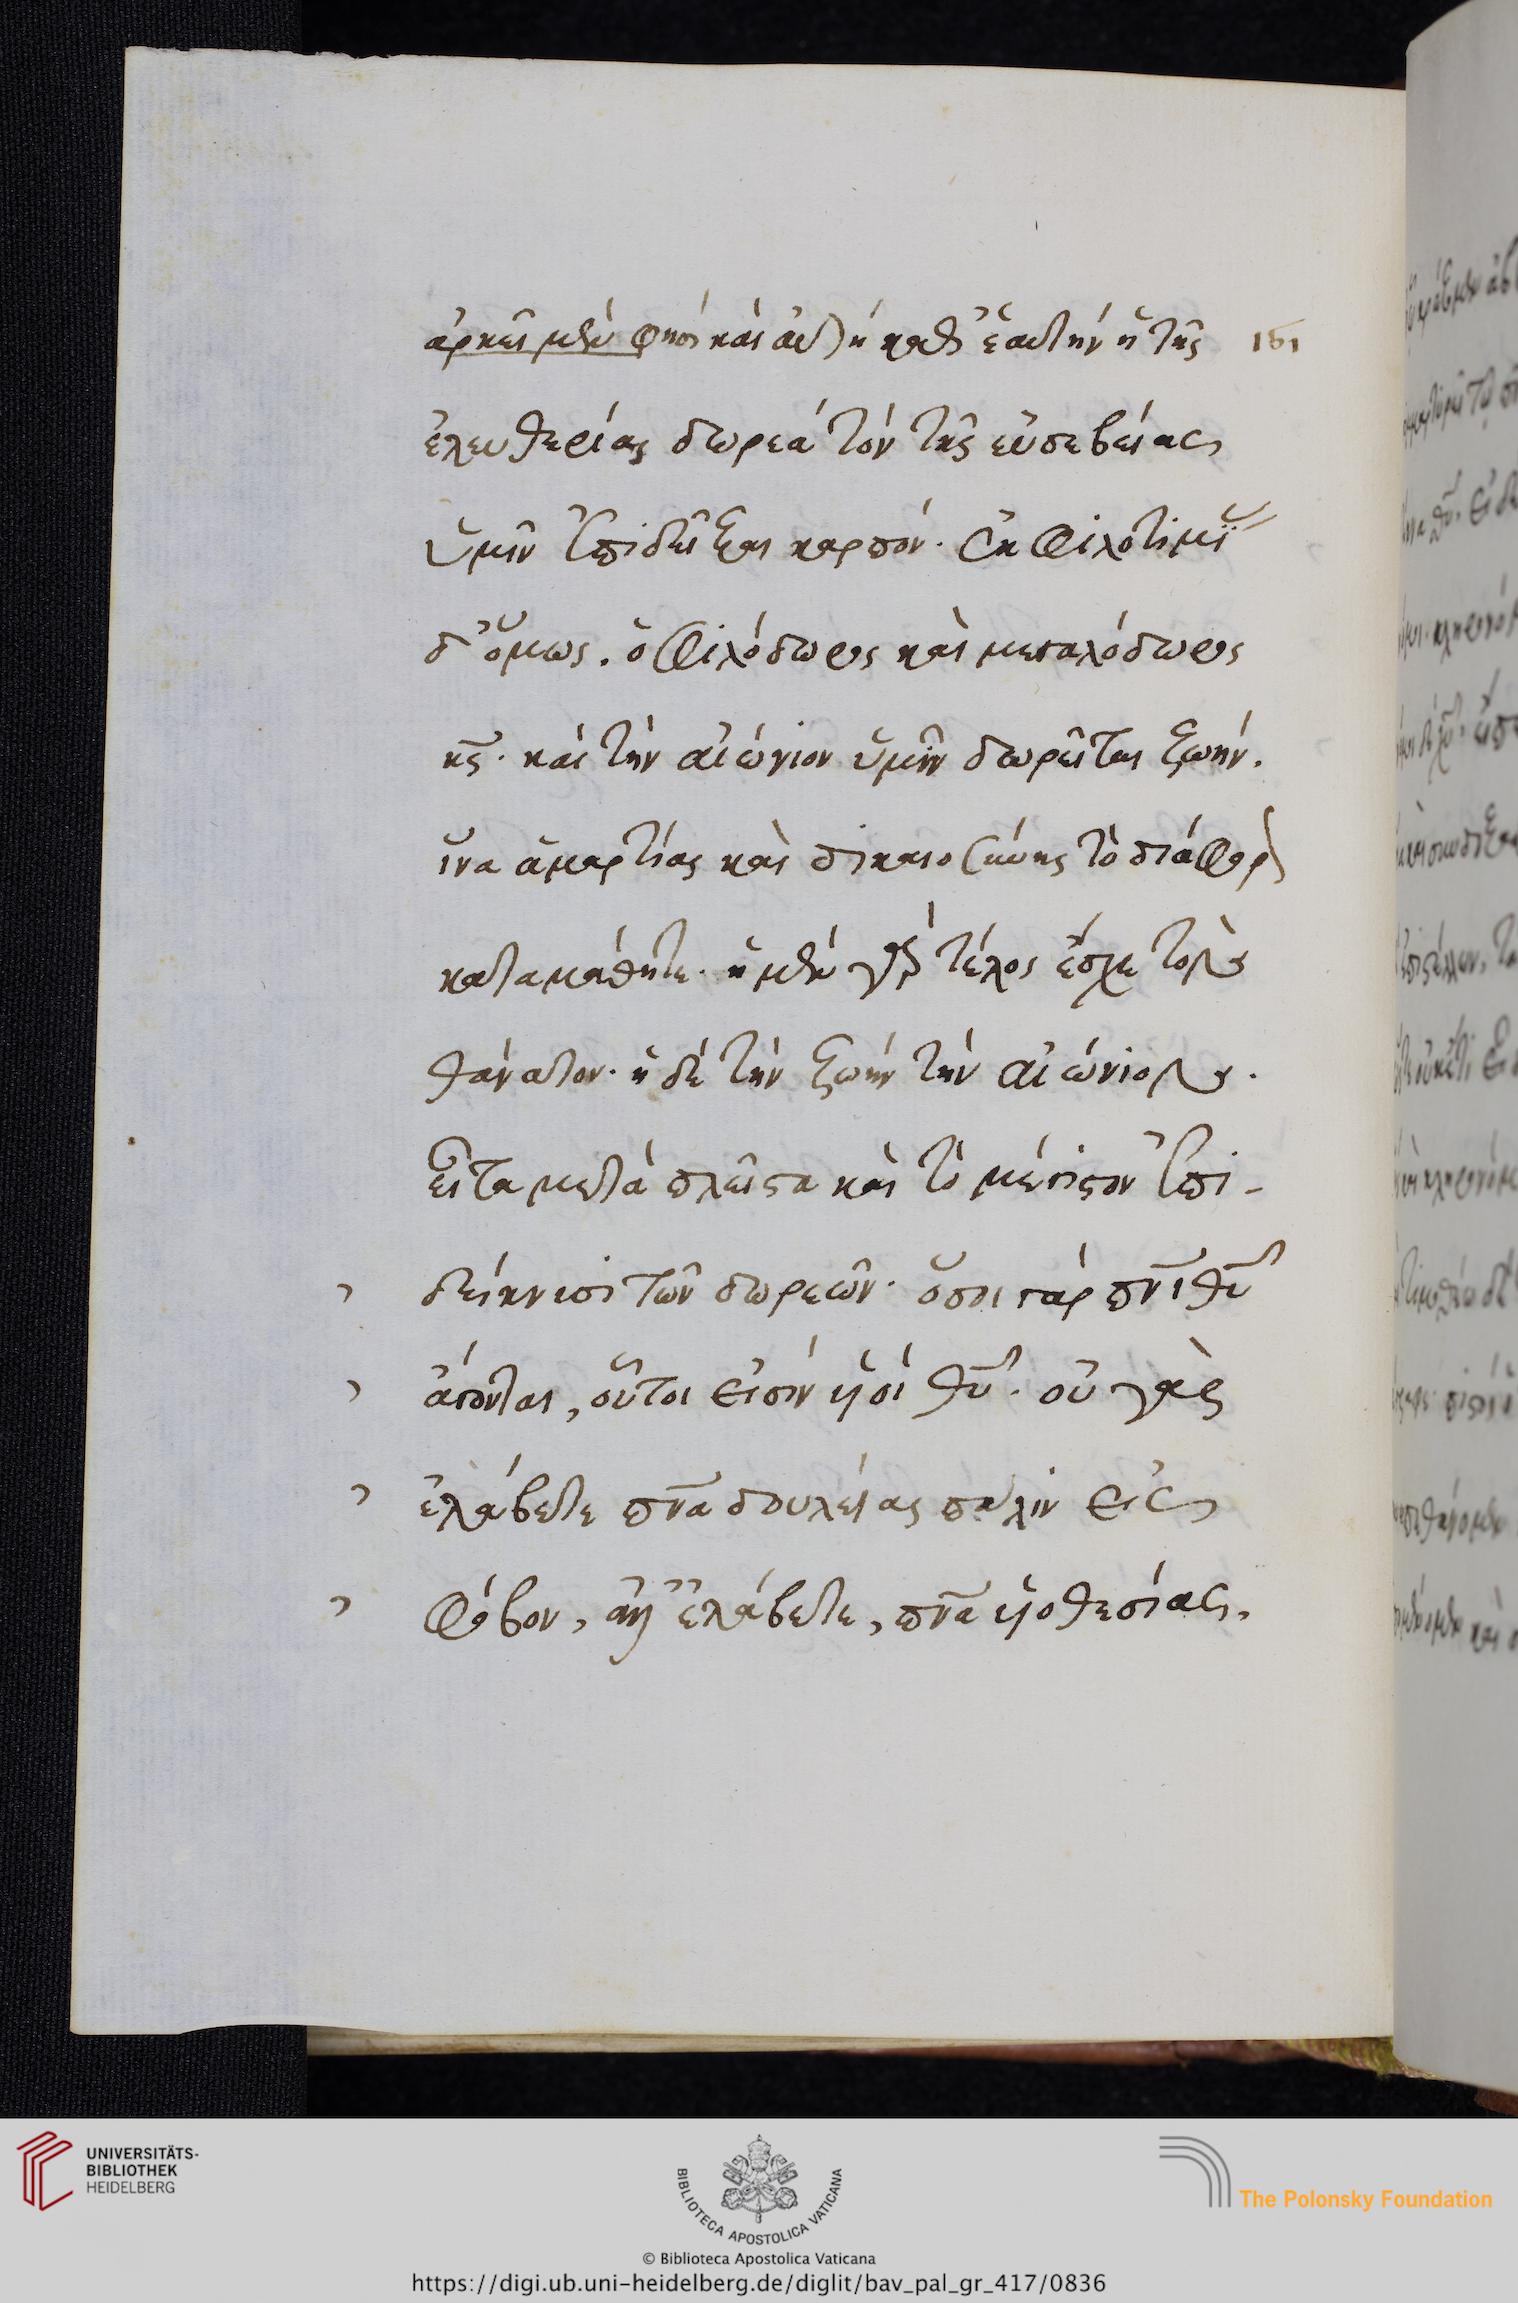 ἀρκεῖ μὲν φησὶ καὶ αὐτὴ καθ' ἑαυτὴν ἡ τῆς 151
ἐλευθερίας δωρεὰ τὸν τῆς εὐσεβείας
ὑμῖν ἐπιδεῖξαι καρπόν. ἐκ φιλοτιμί
δ' ὅμως. ὁ φιλόδωρος καὶ μεγαλόδωρος
κς. καὶ τὴν αἰώνιον ὑμῖν δωρεῖται ζωήν.
ἵνα ἁμαρτίας καὶ δικαιοσύνης τὸ διάφορον
καταμάθητε. ἡ μὲν γὰρ τέλος ἔσχε τὸν
θάνατον. ἡ δὲ τὴν ζωὴν τὴν αἰώνιον.
εἶτα μετὰ πλεῖστα καὶ τὸ μέγιστον ἐπι-
δείκνυσι τῶν δωρεῶν. ὅσοι γὰρ πνι θυ
ἄγονται, οὗτοι εἰσὶν υἱοὶ θυ. οὐ γὰρ
ἐλάβετε πνα δουλείας πάλιν εἰς
φόβον, ἀλλ' ἐλάβετε, πνα υἱοθεσίας,
UNIVERSITÄTS-
BIBLIOTHEK
HEIDELBERG
BIBLIOTECA APOSTOLICA VATICANA
The Polonsky Foundation
© Biblioteca Apostolica Vaticana
https://digi.ub.uni-heidelberg.de/diglit/bav_pal_gr_417/0836